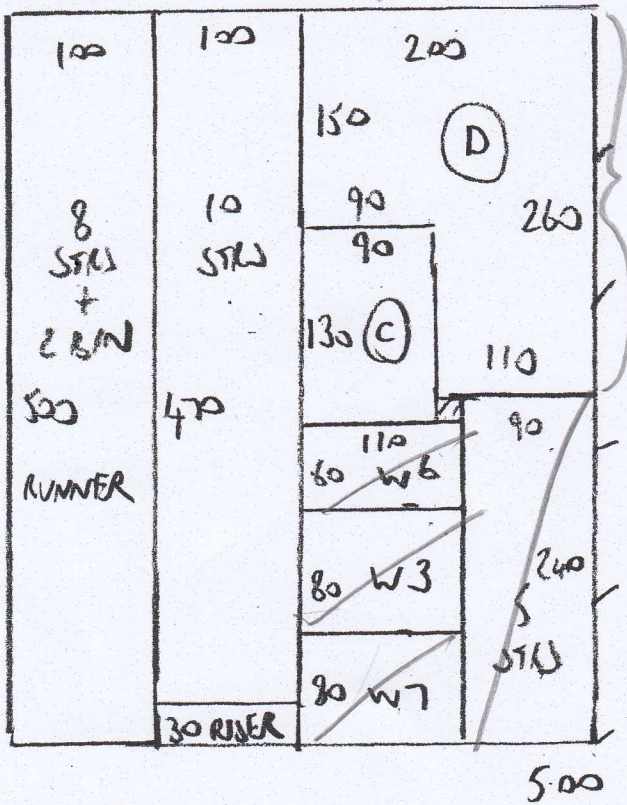 100
8
STRS
+
2 BIN
500
RUNNER
100
10
STRS
470
30 RISER
200
150
D
260
90
90
130 C
110
110
60 W6
80 W3
80 W7
90
240
5
STRS
5.00